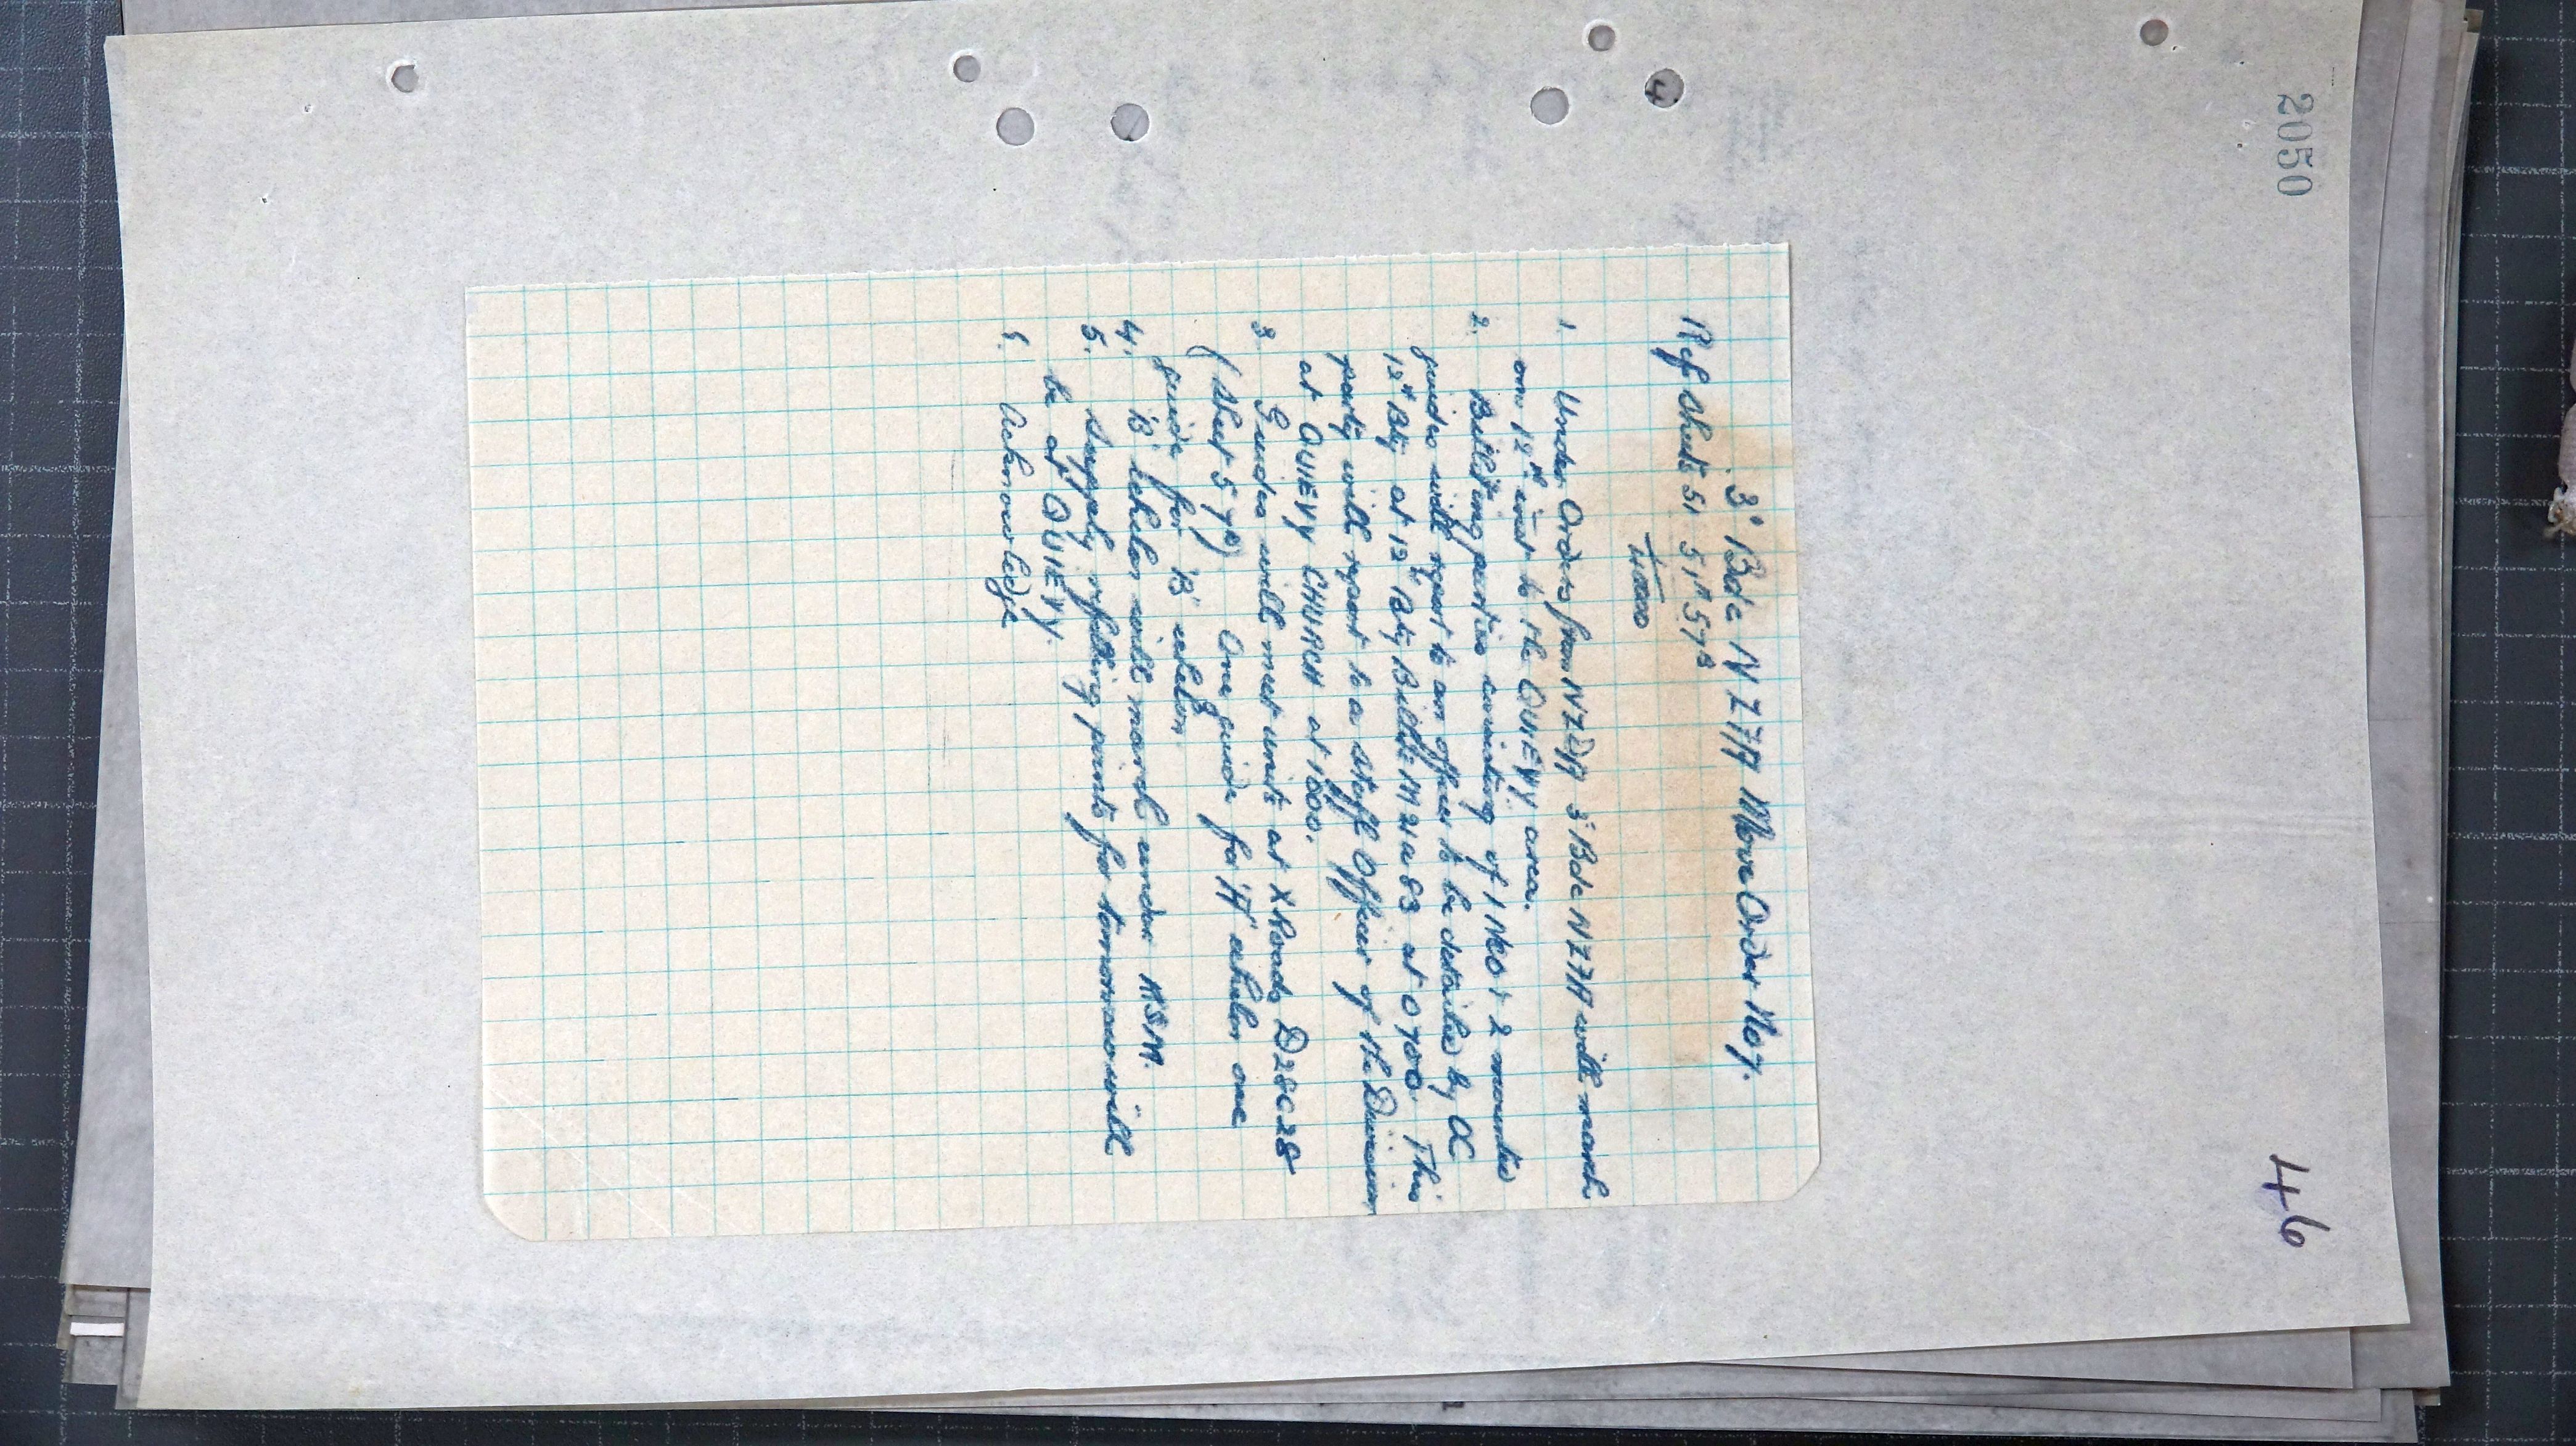 2050
46
3' Bde NZFA Move Order No 7.
Ref Sheets 51 51A 57B
1/40000
1. Under Orders from NZDA 3' Bde NZFA will march
on 12th inst to the QUIEVY area.
2. Billeting parties consisting of 1 NCO + 2 mounted
guides will report to an officer to be detailed by OC
12th Bty at 12th Bty Billets M21a83 at 0700 This
party will report to a Staff Officer of the Division
at QUIEVY CHURCH at 1200.
3. Guides will meet units at X Roads D28c28
(Sheet 57B) One guide for 'A' echelon one
guide for 'B' echelon
4. 'B' Echelon will march under RSM.
5. Supply refilling points for tomorrow will
be at QUIEVY.
Acknowledge